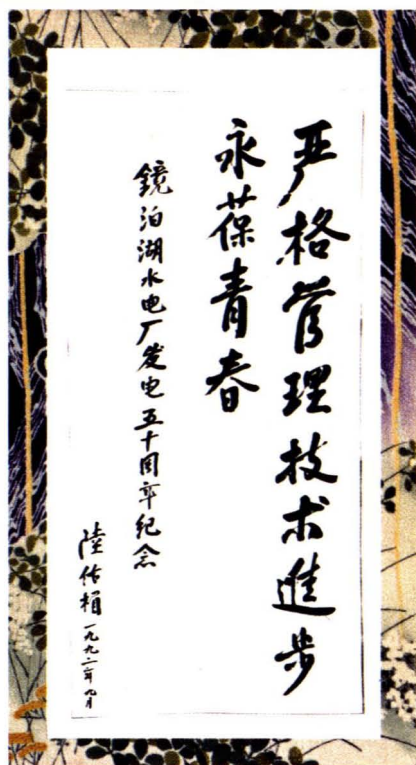 严格管理技术進步
永葆青春
鏡泊湖水电厂发电五十周年纪念
陸佑楣一九九二年九月